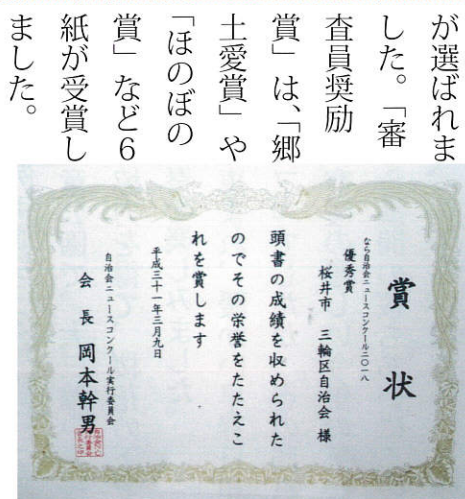 が選ばれま
した。「審
査員奨励
賞」は、「郷
土愛賞」や
「ほのぼの
賞」など6
紙が受賞し
ました。
賞状
なら自治会ニュースコンクール二〇一八
優秀賞
桜井市 三輪区自治会 様
頭書の成績を収められた
のでその栄誉をたたえこ
れを賞します
平成三十一年三月九日
自治会ニュースコンクール実行委員会
会長 岡本幹男